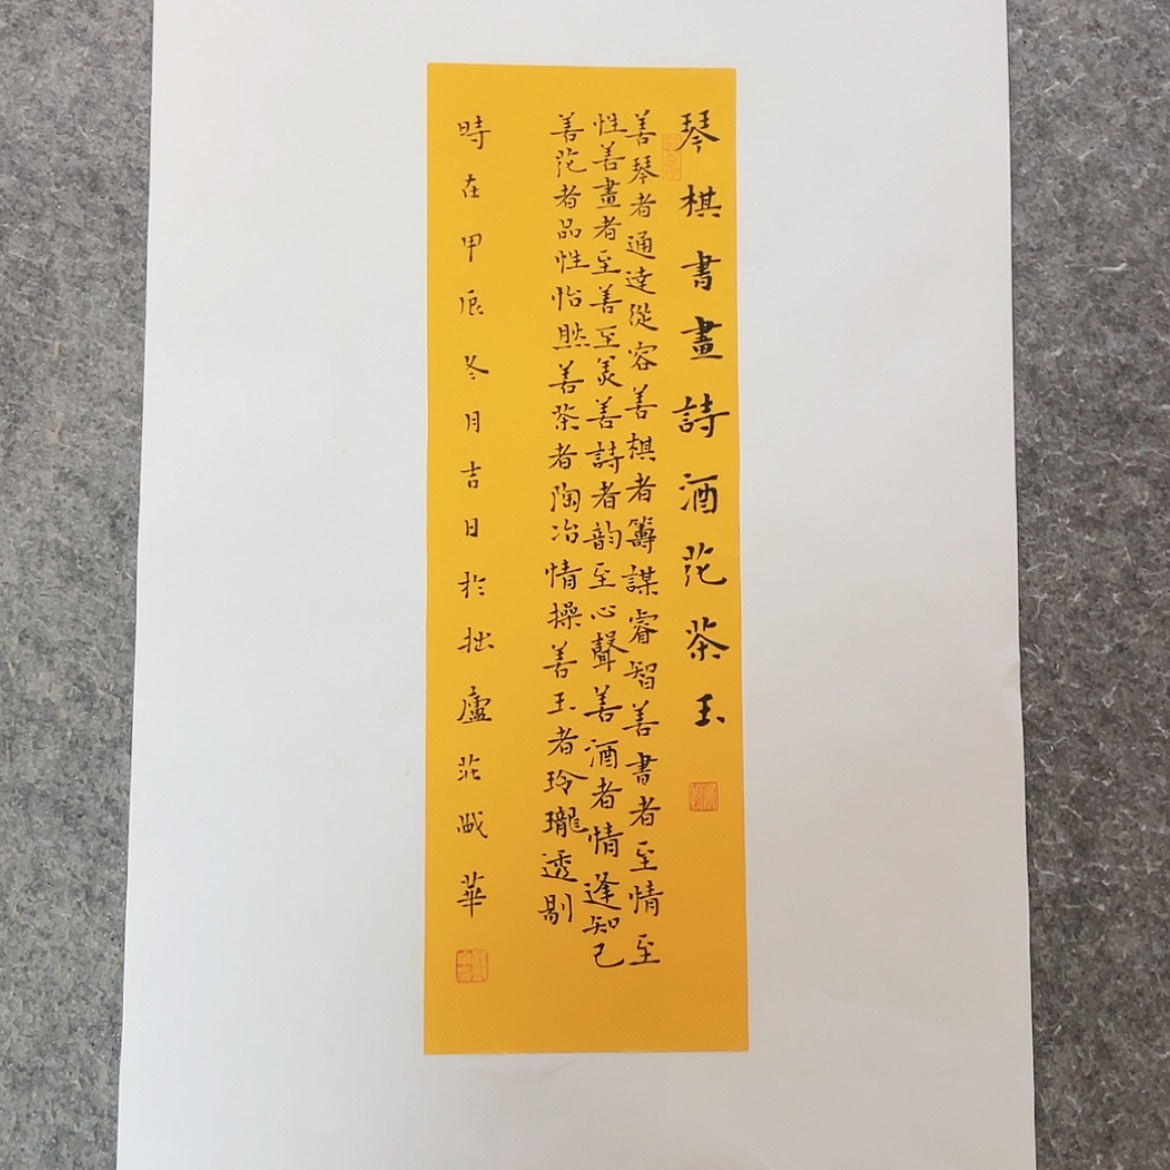 琴棋書畫詩酒花茶玉
善琴者通達從容善棋者籌謀睿智善書者至情至
性善畫者至善至美善詩者韵至心聲善酒者情逢知己
善花者品性怡然善茶者陶冶情操善玉者玲瓏透剔
時在甲辰冬月吉日於拙廬范華